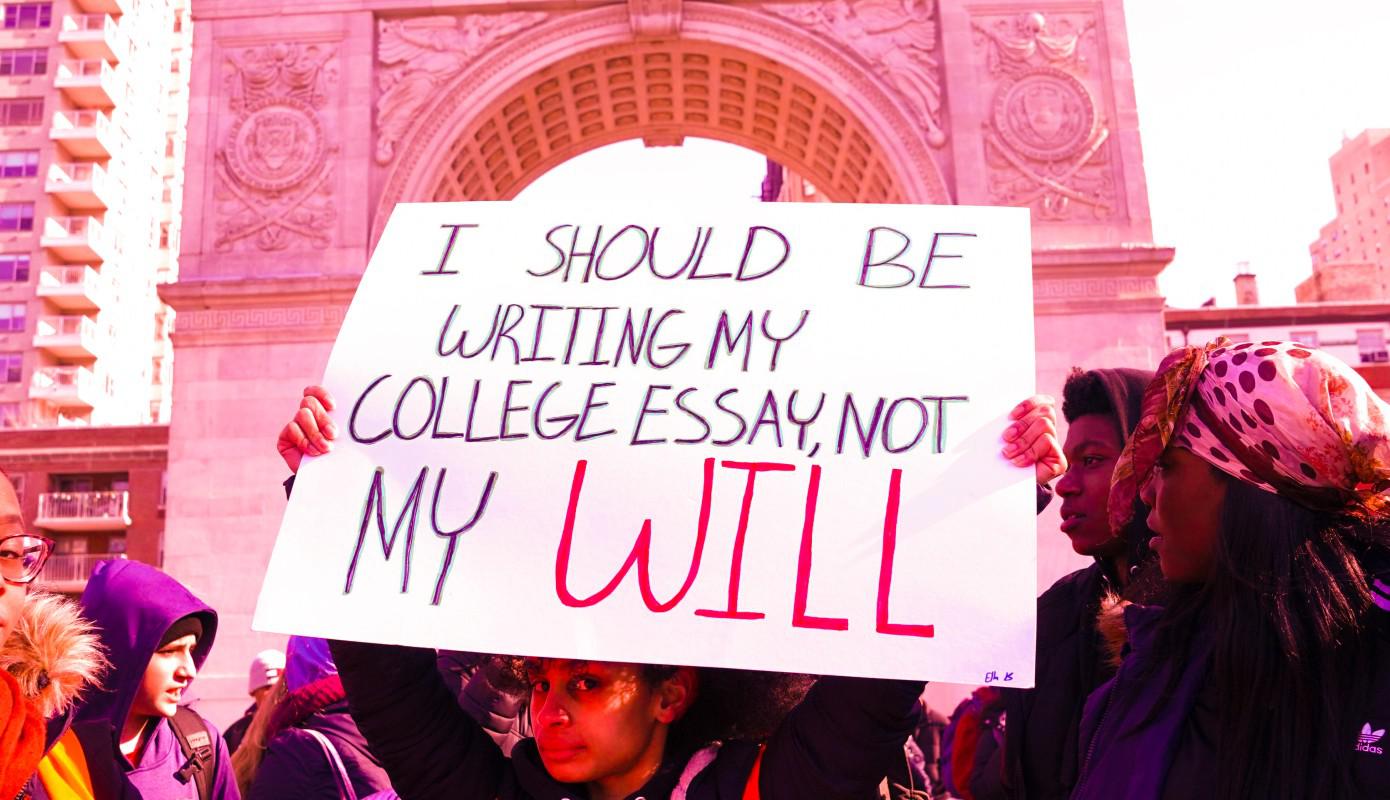 I SHOULD BE
WRITING MY
COLLEGE ESSAY, NOT
MY WILL
adidas